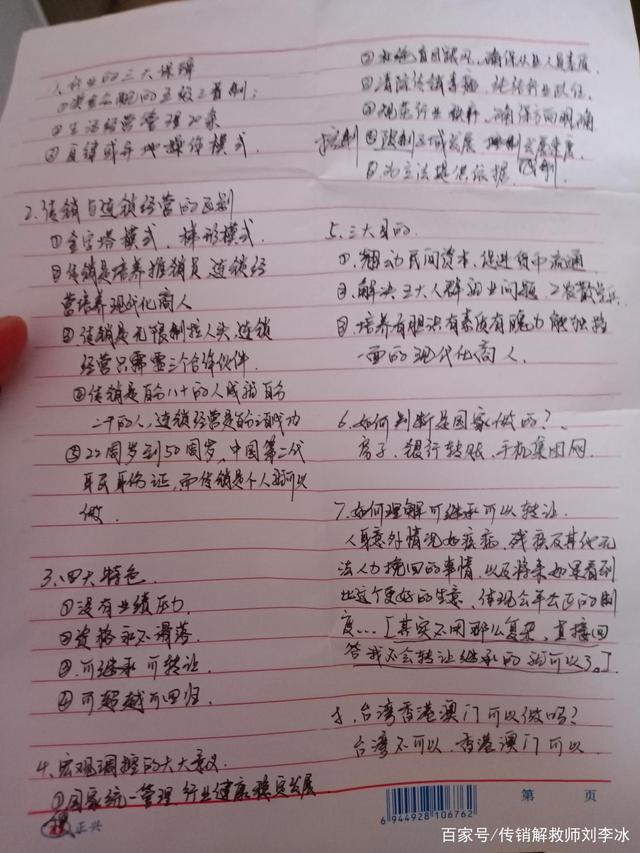 1.行业的三大保障
③直辖或异地操作模式.
2.传销与连锁经营的区别
①金字塔模式 梯形模式.
②传销是培养推销员 连锁经
营培养现代化商人
③传销是无限制拉人头,连锁
经营只需要三个合诈伙伴.
④传销是百分八十的人成就百分
二十的人,连锁经营是百分百成功
⑤22周岁到50周岁,中国第二代
居民身份证,而传销是个人就可以
做.
3.四大特色
①没有业绩压力
②资格永不滑落
③可继承 可转让
④可超越可回归.
4.宏观调控的六大意义
①国家统一管理 行业健康稳定发展
正兴
确保从业人员素质.
③清除传销毒瘤,
④规范行业秩序,确保方向明确
⑥为立法提供依据.
5.三大目的.
①.翻动民间资本,促进货币流通.
②.解决三大人群就业问题
③.培养有胆识有素质有魄力能独挡
一面的现代化商人.
6.如何判断是国家做的?.
房子、银行转账、手机集团网.
7.如何理解可继承可以转让.
人身意外情况如疾病,残疾及其他无
法人力挽回的事情,以及将来如果看到
比这个更好的生意,体现公平公正的制
度...[其实不用那么复杂,直接回
答我不会转让继承的就可以了。]
8.台湾香港澳门可以做吗?
台湾不可以.香港澳门可以.
6 944928 106762
第 页
百家号/传销解救师刘李冰